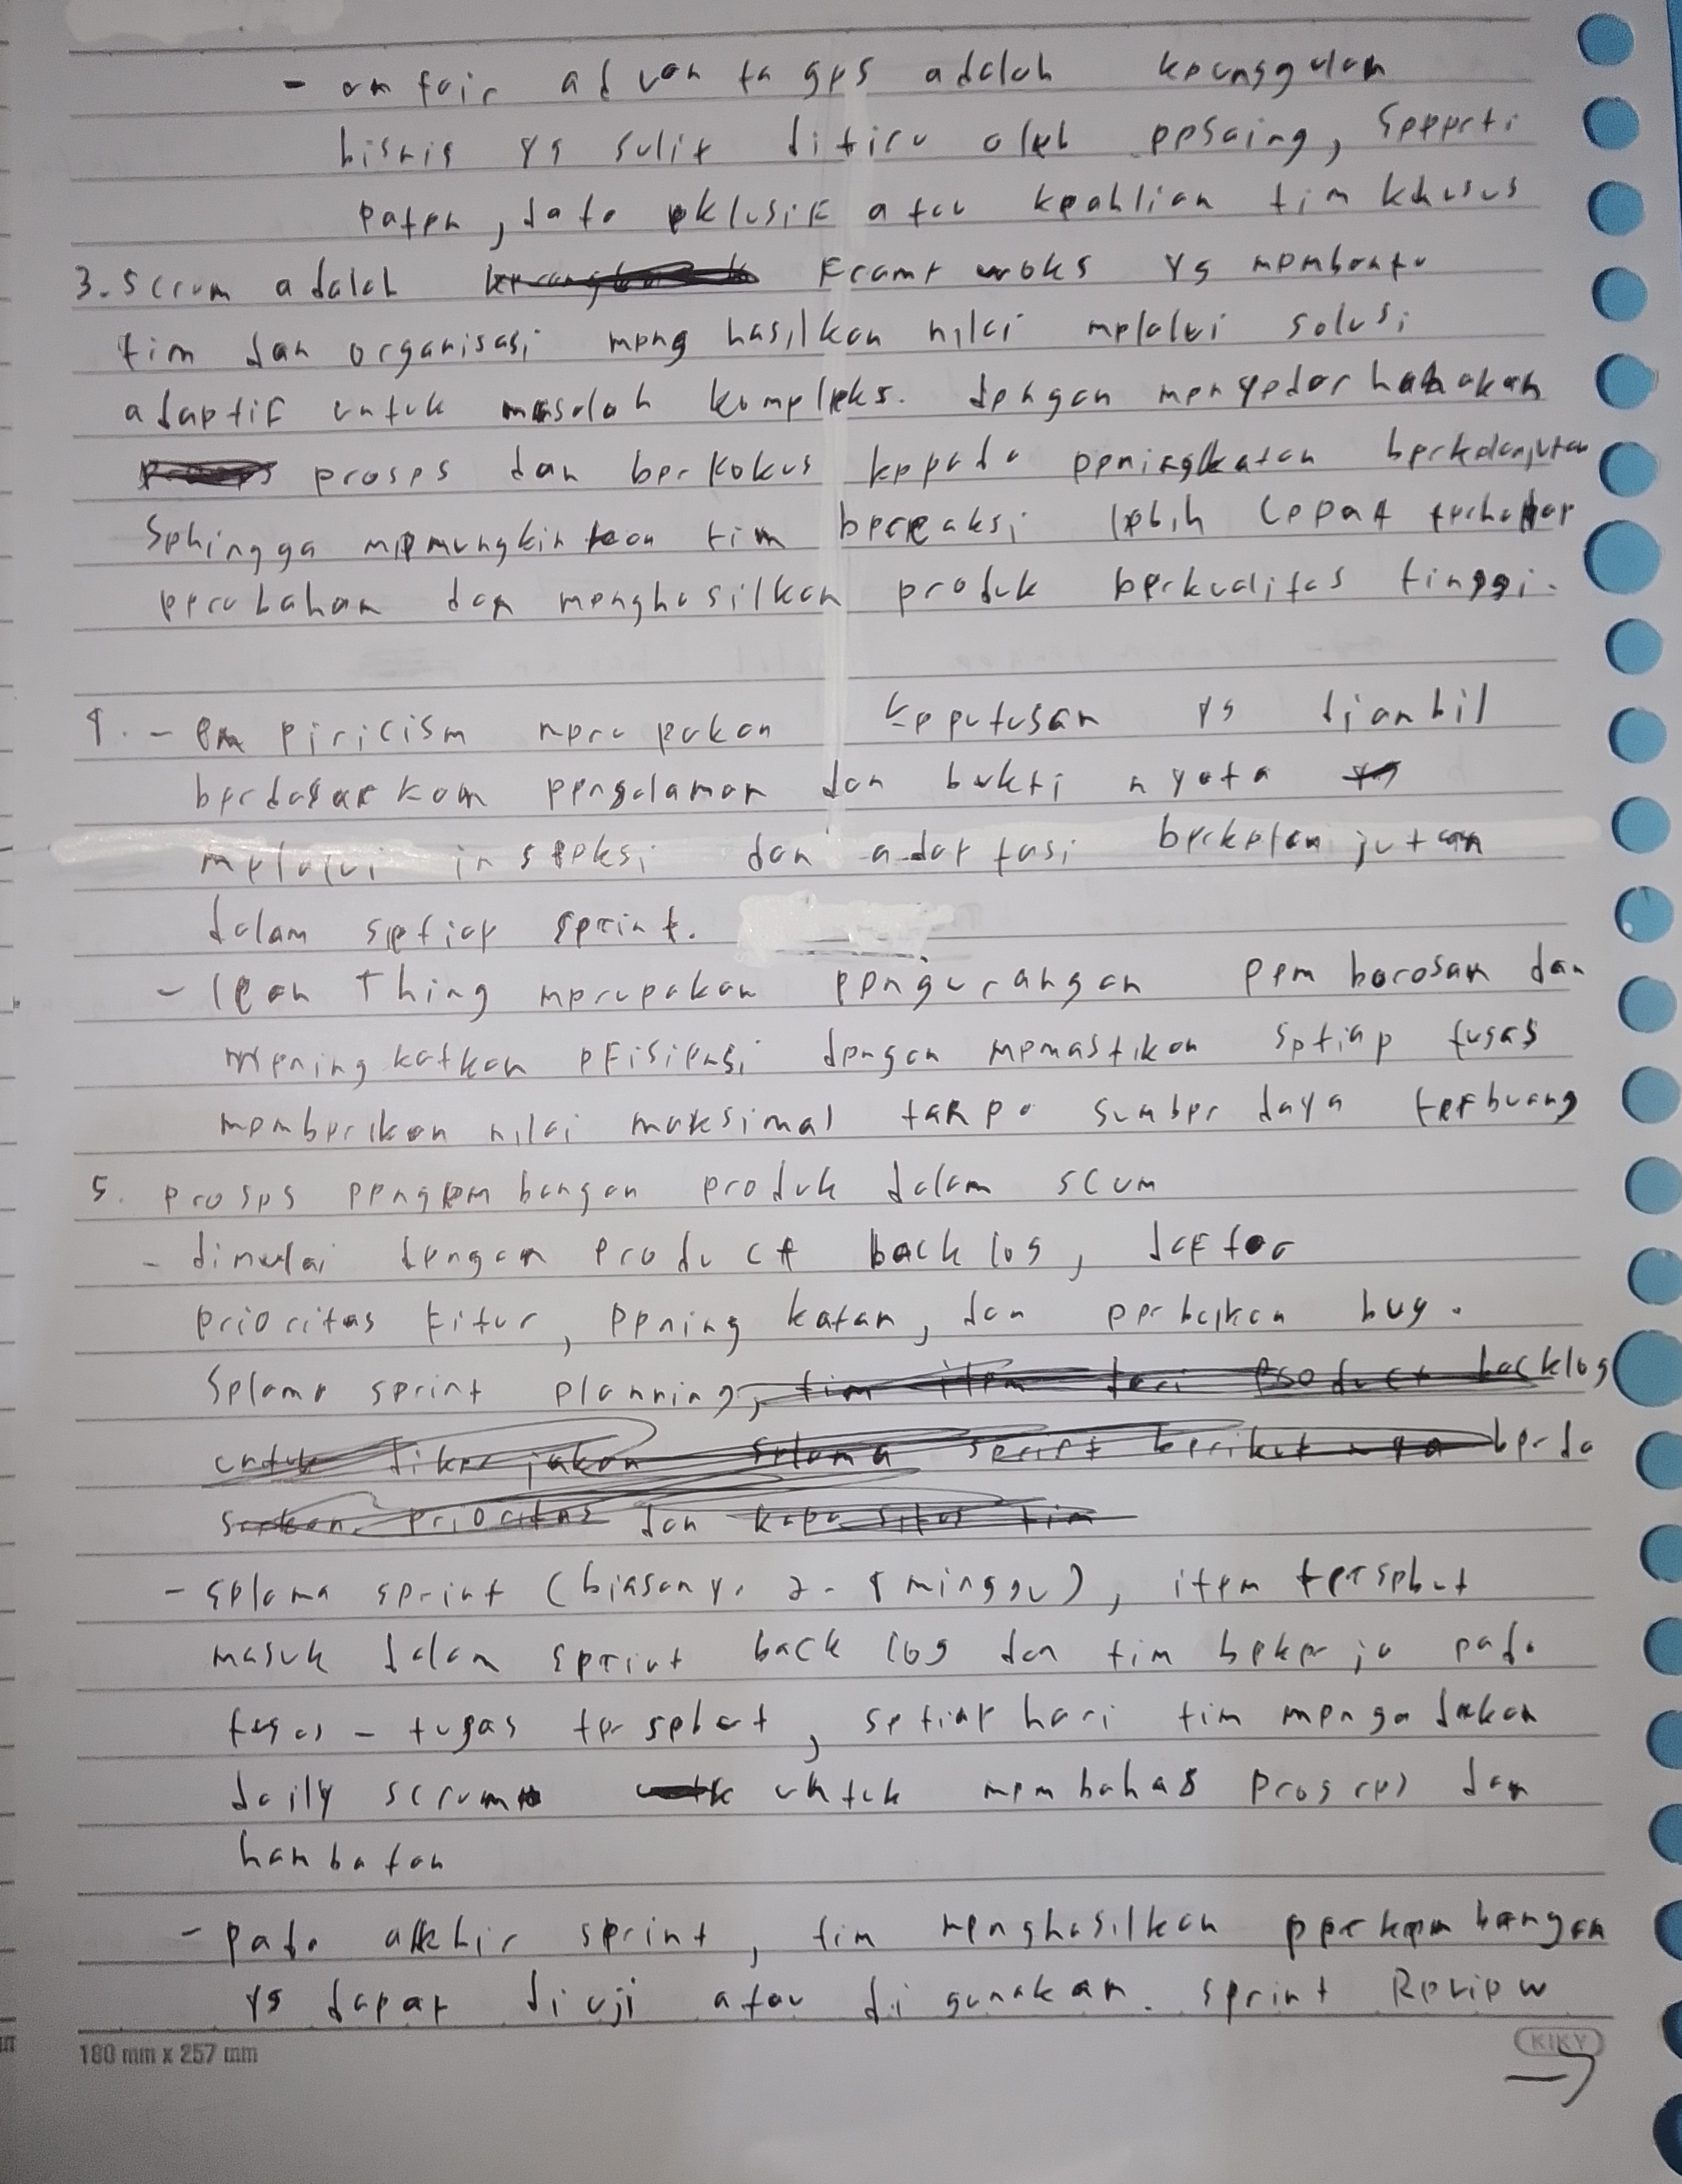 - unfair advantages adalah keunggulan
bisnis yg sulit ditiru oleh pesaing, seperti
paten, data eklusif atau keahlian tim khusus
3. Scrum adalah Frame woks yg membantu
tim dan organisasi menghasilkan nilai melalui solusi
adaptif untuk masalah kompleks. dengan menyederhanakan
proses dan berkokus kepada peningkatan berkelanjutan
Sehingga memungkinkan tim bereaksi lebih cepat terhadap
perubahan dan menghasilkan produk berkualitas tinggi.
4. - Empiricism merupakan keputusan yg diambil
berdasarkan pengalaman dan bukti nyata
melalui inspeksi dan adaptasi berkelanjutan
dalam setiap sprint.
- lean Thing merupakan pengurangan pemborosan dan
meningkatkan efisiensi dengan memastikan setiap tugas
memberikan nilai maksimal tanpa sumber daya terbuang
5. proses pengembangan produk dalam scum
- dimulai dengan product backlog, daftar
prioritas fitur, peningkatan, dan perbaikan bug.
Selama sprint planning, tim item dari product backlog
untuk dikerjakan selama sprint berikutnya berda
sarkan prioritas dan kapasitas tim
- selama sprint (biasanya 2-4 minggu), item tersebut
masuk dalam sprint backlog dan tim bekerja pada
tugas-tugas tersebut, setiap hari tim mengadakan
daily scrum untuk membahas progres dan
hambatan
- pada akhir sprint, tim menghasilkan perkembangan
yg dapat diuji atau digunakan. sprint Review
180 mm x 257 mm
KIKY